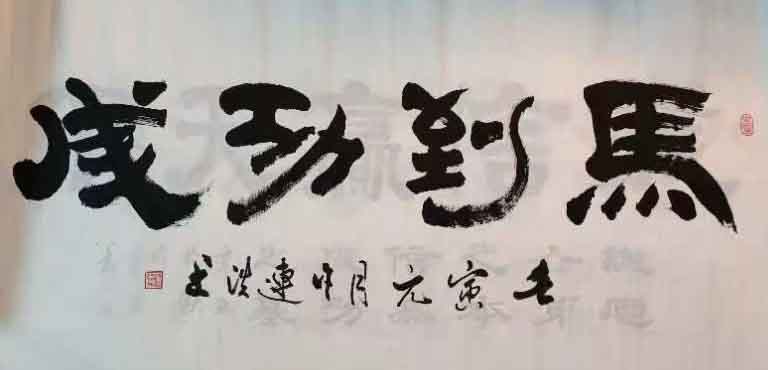 馬到功成
壬寅元月連洪书